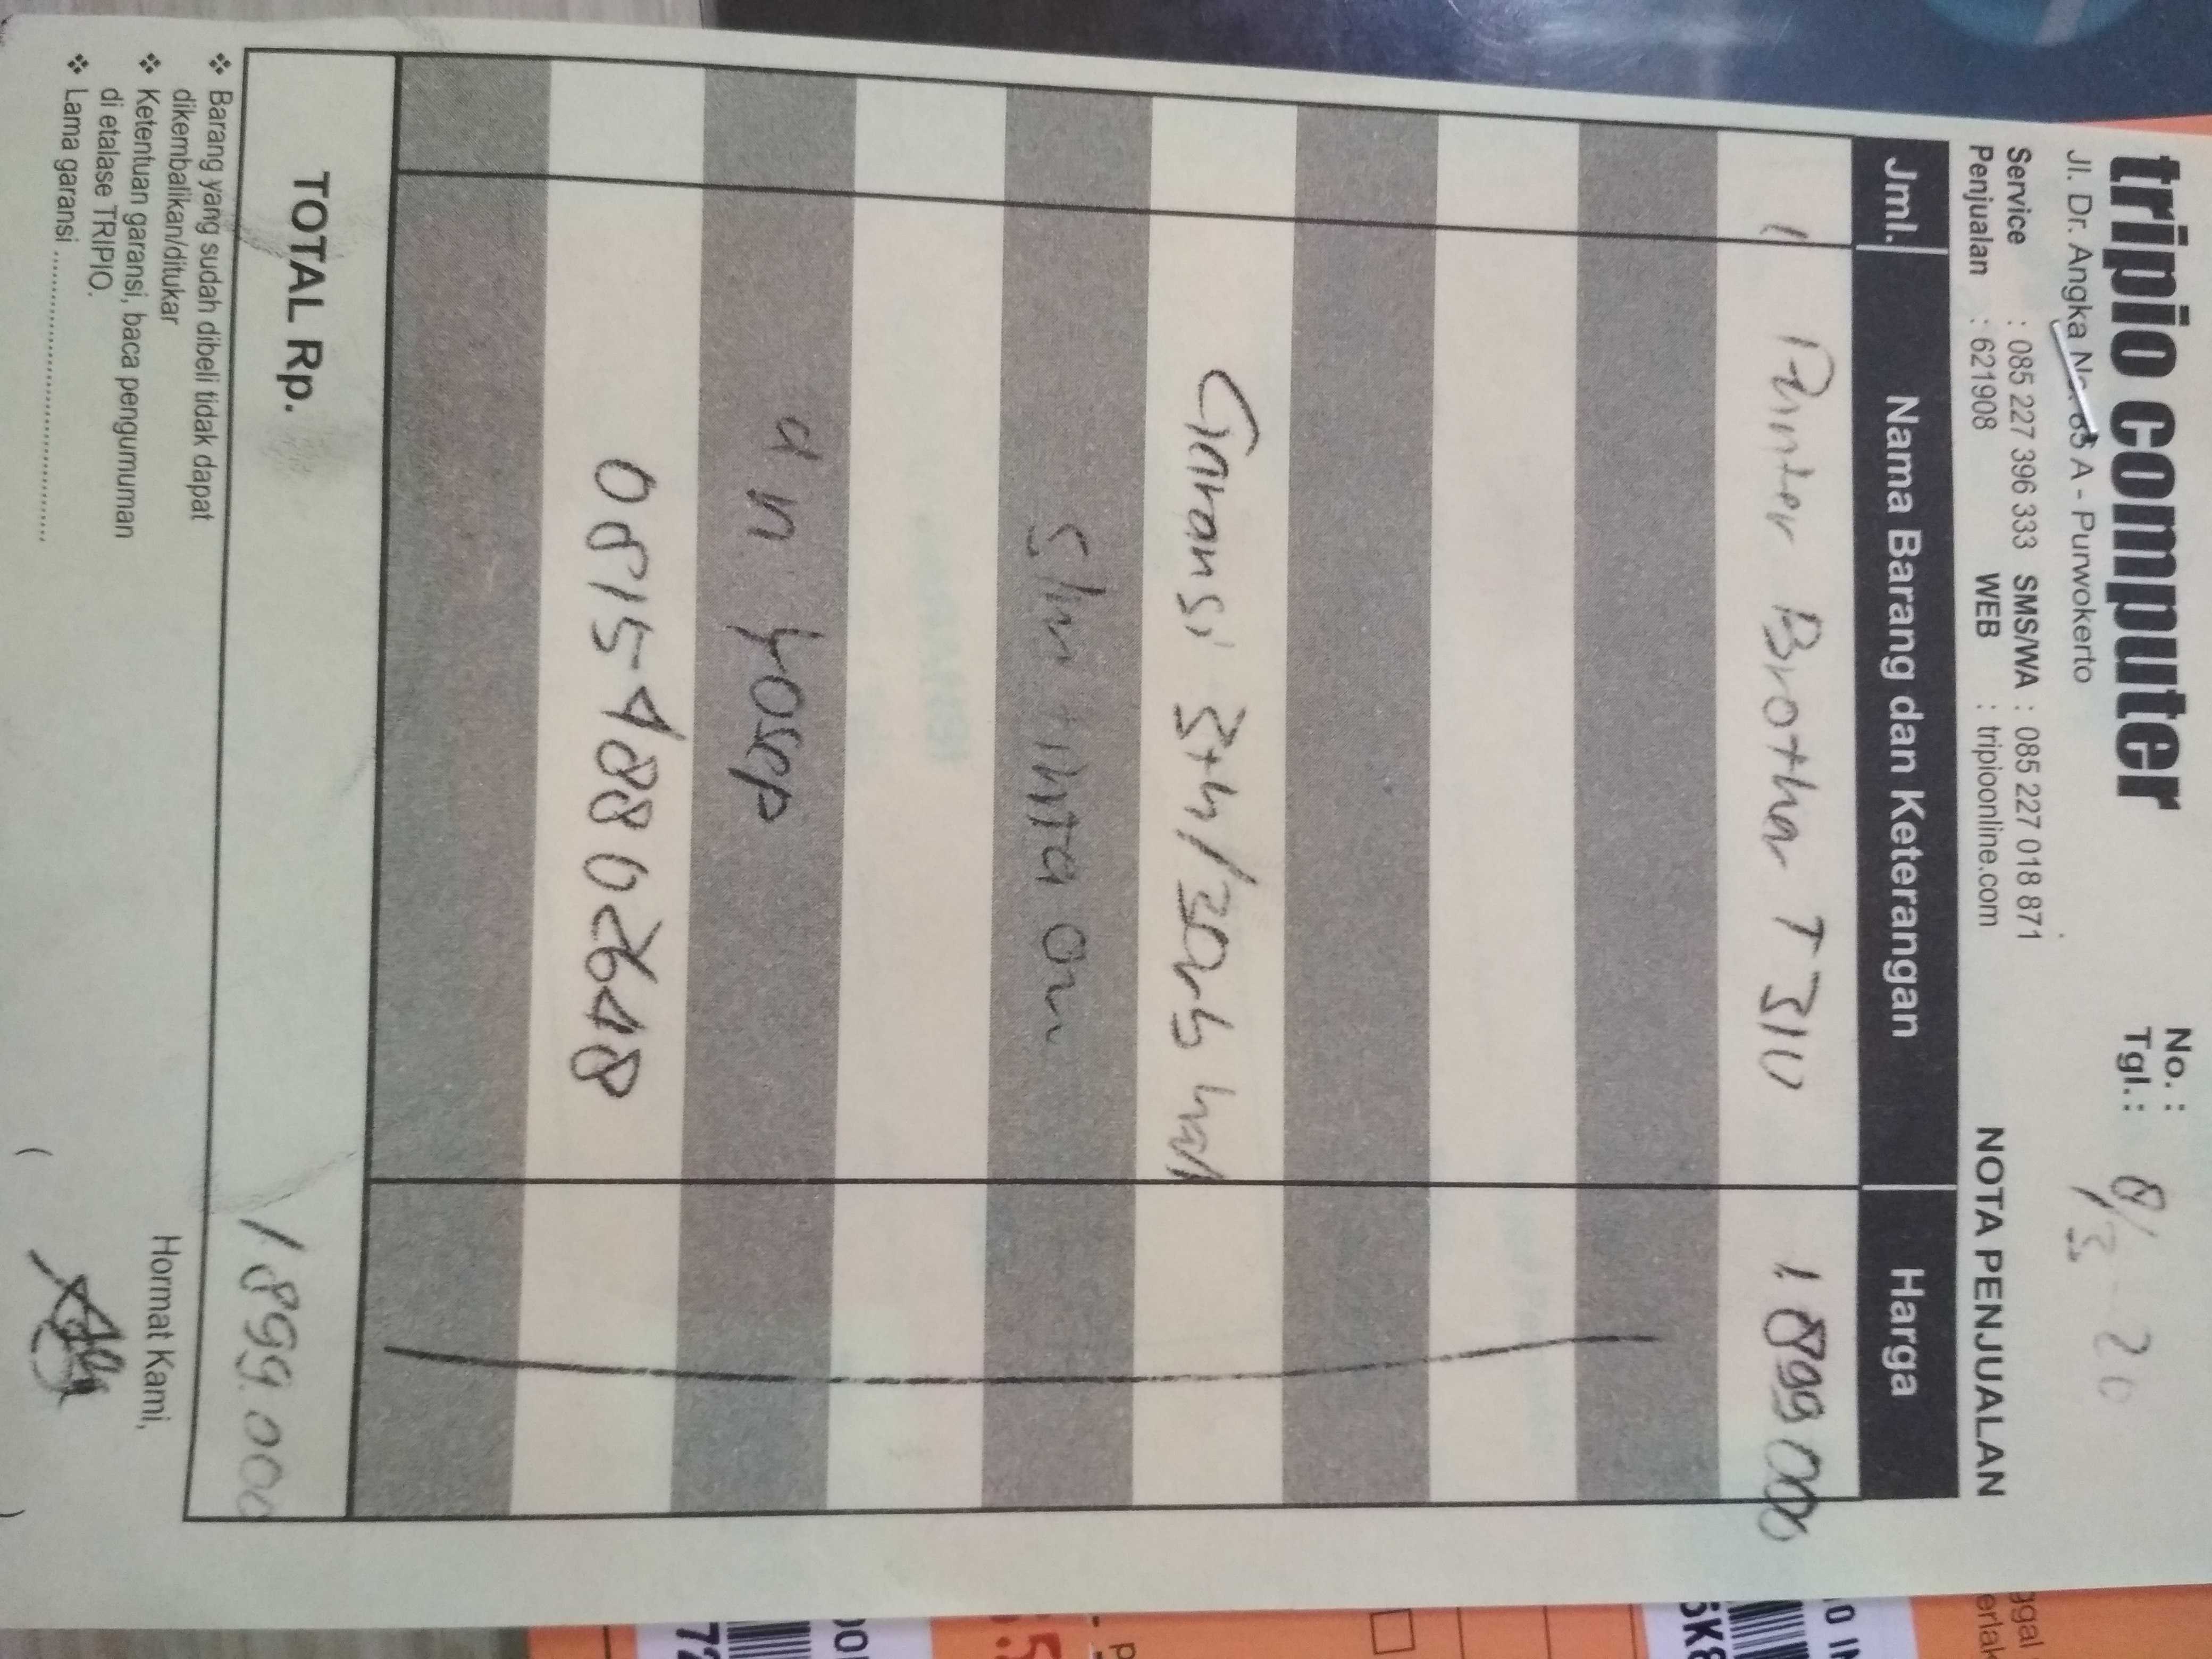 tripio computer
Jl. Dr. Angka No. 63 A - Purwokerto
Service : 085 227 396 333 SMS/WA : 085 227 018 871
Penjualan : 621908 WEB : tripioonline.com
No. :
Tgl. : 8/3 - 20
NOTA PENJUALAN
Jml. Nama Barang dan Keterangan Harga
1 Printer Brother T 310 1.899 000
Garansi 3th/30rb hal
tinta on
an. Yosep
0815-4880 2648
TOTAL Rp. 1 899.000
❖ Barang yang sudah dibeli tidak dapat
dikembalikan/ditukar
❖ Ketentuan garansi, baca pengumuman
di etalase TRIPIO.
❖ Lama garansi ..........
Hormat Kami,
( )